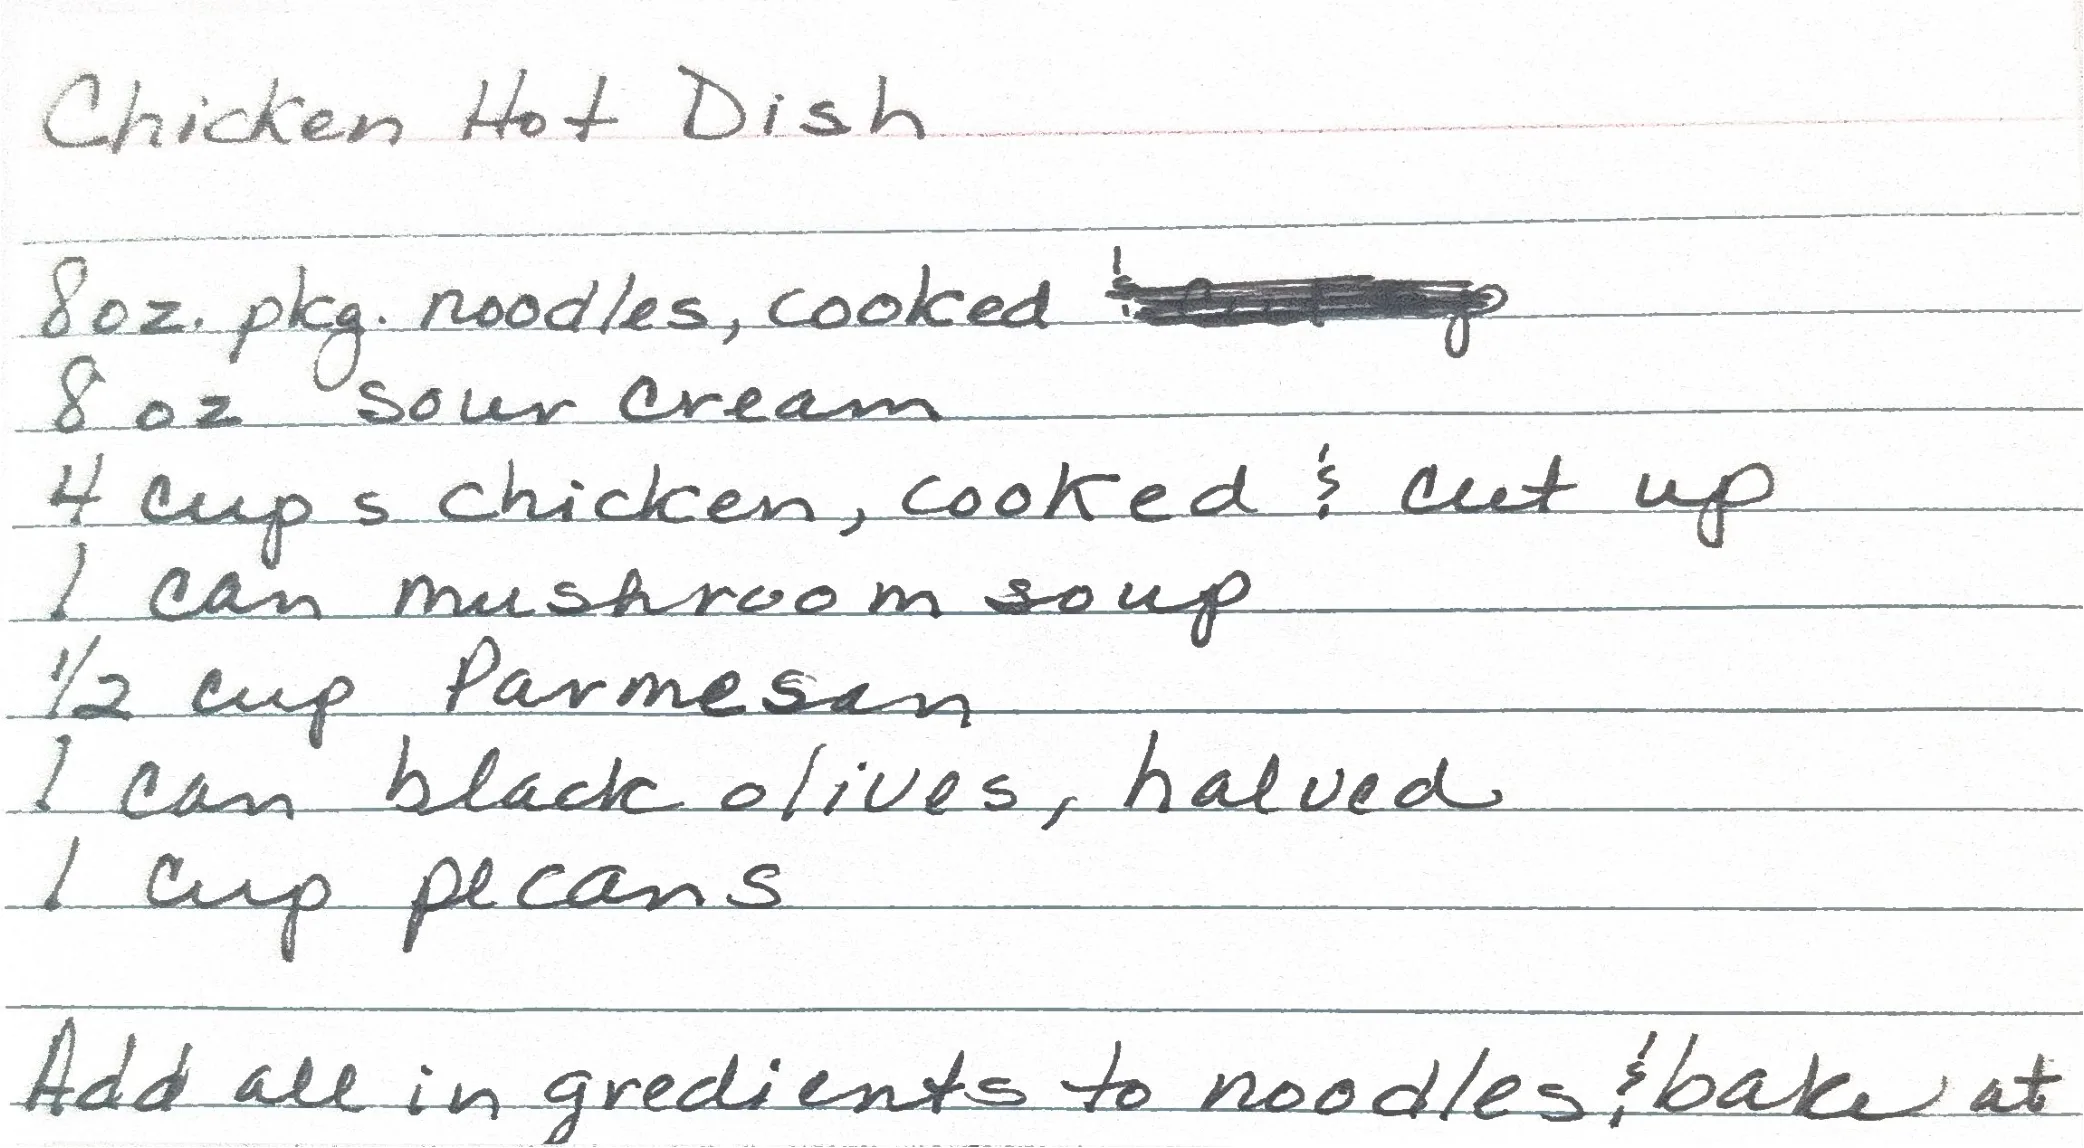 Chicken Hot Dish
8oz. pkg. noodles, cooked
8 oz sour cream
4 cups chicken, cooked & cut up
1 can mushroom soup
1/2 cup Parmesan
1 can black olives, halved
1 cup pecans
Add all ingredients to noodles, & bake at